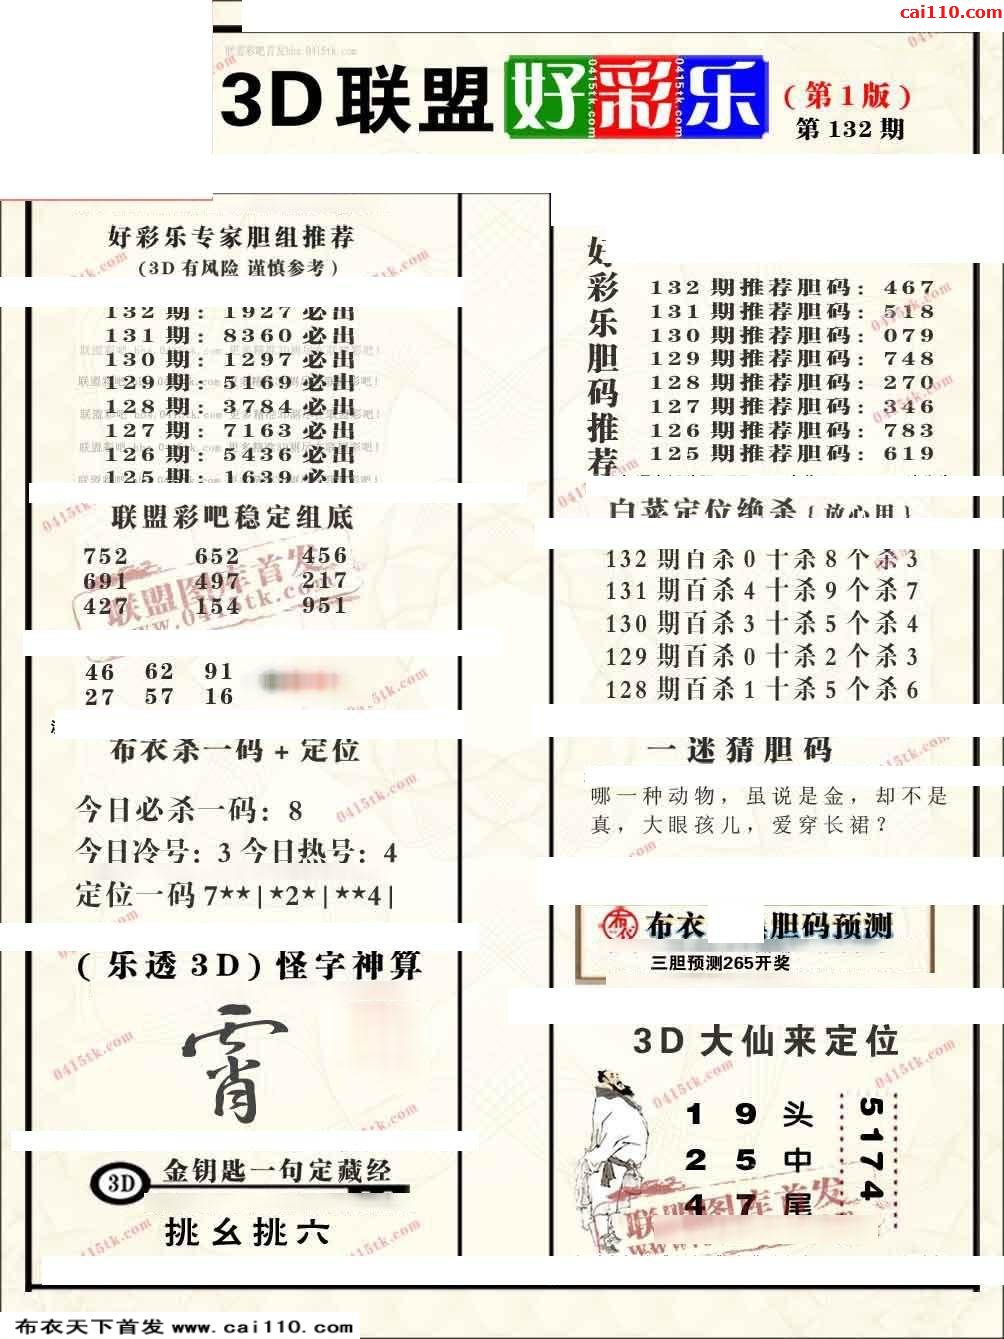 cai110.com
3D联盟 好彩乐
(第1版)
第132期
好彩乐专家胆组推荐
(3D有风险 谨慎参考)
132期: 1927必出
131期: 8360必出
130期: 1297必出
128期: 3784必出
127期: 7163必出
126期: 5436必出
125期: 1639必出
联盟彩吧稳定组底
752 652 456
691 497 217
427 154 951
46 62 91
27 57 16
布衣杀一码+定位
今日必杀一码: 8
今日冷号: 3 今日热号: 4
定位一码 7**|*2*|**4|
(乐透3D)怪字神算
霄
3D 金钥匙一句定藏经
挑幺挑六
好彩乐胆码推荐
132期推荐胆码: 467
131期推荐胆码: 518
130期推荐胆码: 079
129期推荐胆码: 748
128期推荐胆码: 270
127期推荐胆码: 346
126期推荐胆码: 783
125期推荐胆码: 619
白菜定位绝杀{放心用}
132期百杀0十杀8个杀3
131期百杀4十杀9个杀7
130期百杀3十杀5个杀4
129期百杀0十杀2个杀3
128期百杀1十杀5个杀6
一迷猜胆码
哪一种动物，虽说是金，却不是
真，大眼孩儿，爱穿长裙？
布衣 胆码预测
三胆预测265开奖
3D大仙来定位
1 9 头
2 5 中
4 7 尾
5174
联盟图库首发
布衣天下首发 www.cai110.com